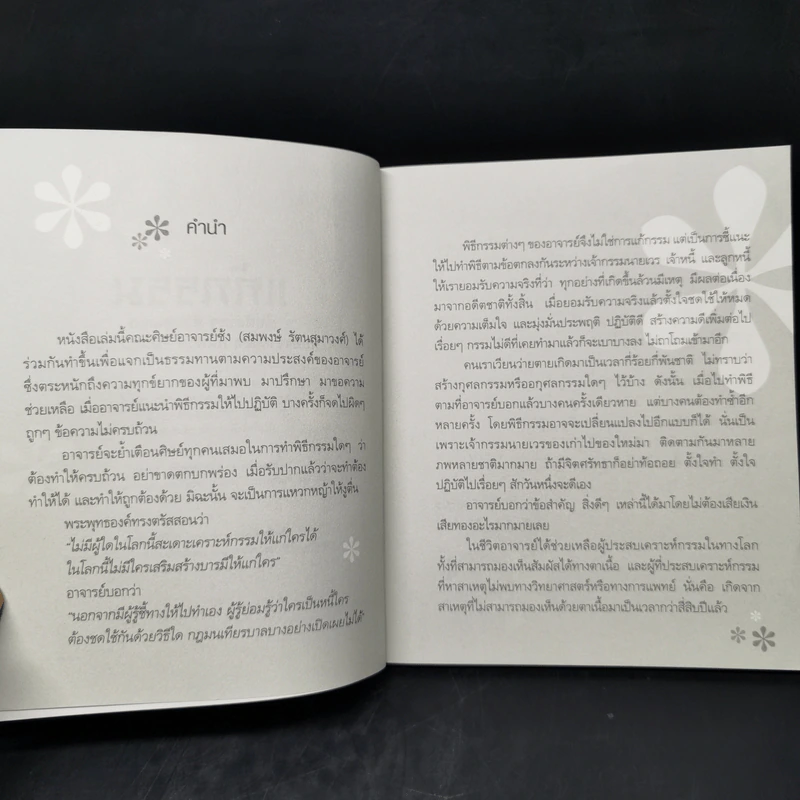 คำนำ
หนังสือเล่มนี้คณะศิษย์อาจารย์ซ้ง (สมพงษ์ รัตนสุมาวงศ์) ได้
ร่วมกันทำขึ้นเพื่อแจกเป็นธรรมทานตามความประสงค์ของอาจารย์
ซึ่งตระหนักถึงความทุกข์ยากของผู้ที่มาพบ มาปรึกษา มาขอความ
ช่วยเหลือ เมื่ออาจารย์แนะนำพิธีกรรมให้ไปปฏิบัติ บางครั้งก็จดไปผิดๆ
ถูกๆ ข้อความไม่ครบถ้วน
อาจารย์จะย้ำเตือนศิษย์ทุกคนเสมอในการทำพิธีกรรมใดๆ ว่า
ต้องทำให้ครบถ้วน อย่าขาดตกบกพร่อง เมื่อรับปากแล้วว่าจะทำต้อง
ทำให้ได้ และทำให้ถูกต้องด้วย มิฉะนั้น จะเป็นการแหวกหญ้าให้งูตื่น
พระพุทธองค์ทรงตรัสสอนว่า
"ไม่มีผู้ใดในโลกนี้สะเดาะเคราะห์กรรมให้แก่ใครได้
ในโลกนี้ไม่มีใครเสริมสร้างบารมีให้แก่ใคร"
อาจารย์บอกว่า
"นอกจากมีผู้รู้ชี้ทางให้ไปทำเอง ผู้รู้ย่อมรู้ว่าใครเป็นหนี้ใคร
ต้องชดใช้กันด้วยวิธีใด กฎมนเทียรบาลบางอย่างเปิดเผยไม่ได้"
พิธีกรรมต่างๆ ของอาจารย์จึงไม่ใช่การแก้กรรม แต่เป็นการชี้แนะ
ให้ไปทำพิธีตามข้อตกลงกันระหว่างเจ้ากรรมนายเวร เจ้าหนี้ และลูกหนี้
ให้เรายอมรับความจริงที่ว่า ทุกอย่างที่เกิดขึ้นล้วนมีเหตุ มีผลต่อเนื่อง
มาจากอดีตชาติทั้งสิ้น เมื่อยอมรับความจริงแล้วตั้งใจชดใช้ให้หมด
ด้วยความเต็มใจ และมุ่งมั่นประพฤติ ปฏิบัติดี สร้างความดีเพิ่มต่อไป
เรื่อยๆ กรรมไม่ดีที่เคยทำมาแล้วก็จะเบาบางลง ไม่ถาโถมเข้ามาอีก
คนเราเวียนว่ายตายเกิดมาเป็นเวลากี่ร้อยกี่พันชาติ ไม่ทราบว่า
สร้างกุศลกรรมหรืออกุศลกรรมใดๆ ไว้บ้าง ดังนั้น เมื่อไปทำพิธี
ตามที่อาจารย์บอกแล้วบางคนครั้งเดียวหาย แต่บางคนต้องทำซ้ำอีก
หลายครั้ง โดยพิธีกรรมอาจจะเปลี่ยนแปลงไปอีกแบบก็ได้ นั่นเป็น
เพราะเจ้ากรรมนายเวรของเก่าไปของใหม่มา ติดตามกันมาหลาย
ภพหลายชาติมากมาย ถ้ามีจิตศรัทธาก็อย่าท้อถอย ตั้งใจทำ ตั้งใจ
ปฏิบัติไปเรื่อยๆ สักวันหนึ่งจะดีเอง
อาจารย์บอกว่าข้อสำคัญ สิ่งดีๆ เหล่านี้ได้มาโดยไม่ต้องเสียเงิน
เสียทองอะไรมากมายเลย
ในชีวิตอาจารย์ได้ช่วยเหลือผู้ประสบเคราะห์กรรมในทางโลก
ทั้งที่สามารถมองเห็นสัมผัสได้ทางตาเนื้อ และผู้ที่ประสบเคราะห์กรรม
ที่หาสาเหตุไม่พบทางวิทยาศาสตร์หรือทางการแพทย์ นั่นคือ เกิดจาก
สาเหตุที่ไม่สามารถมองเห็นด้วยตาเนื้อมาเป็นเวลากว่าสี่สิบปีแล้ว